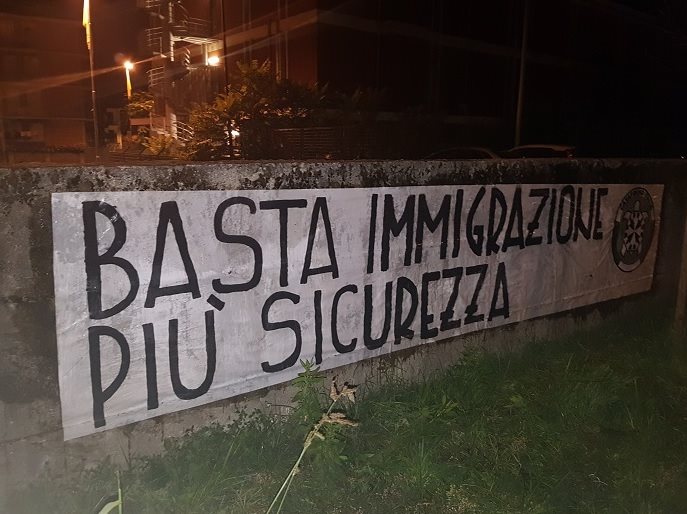 BASTA IMMIGRAZIONE
PIÙ SICUREZZA